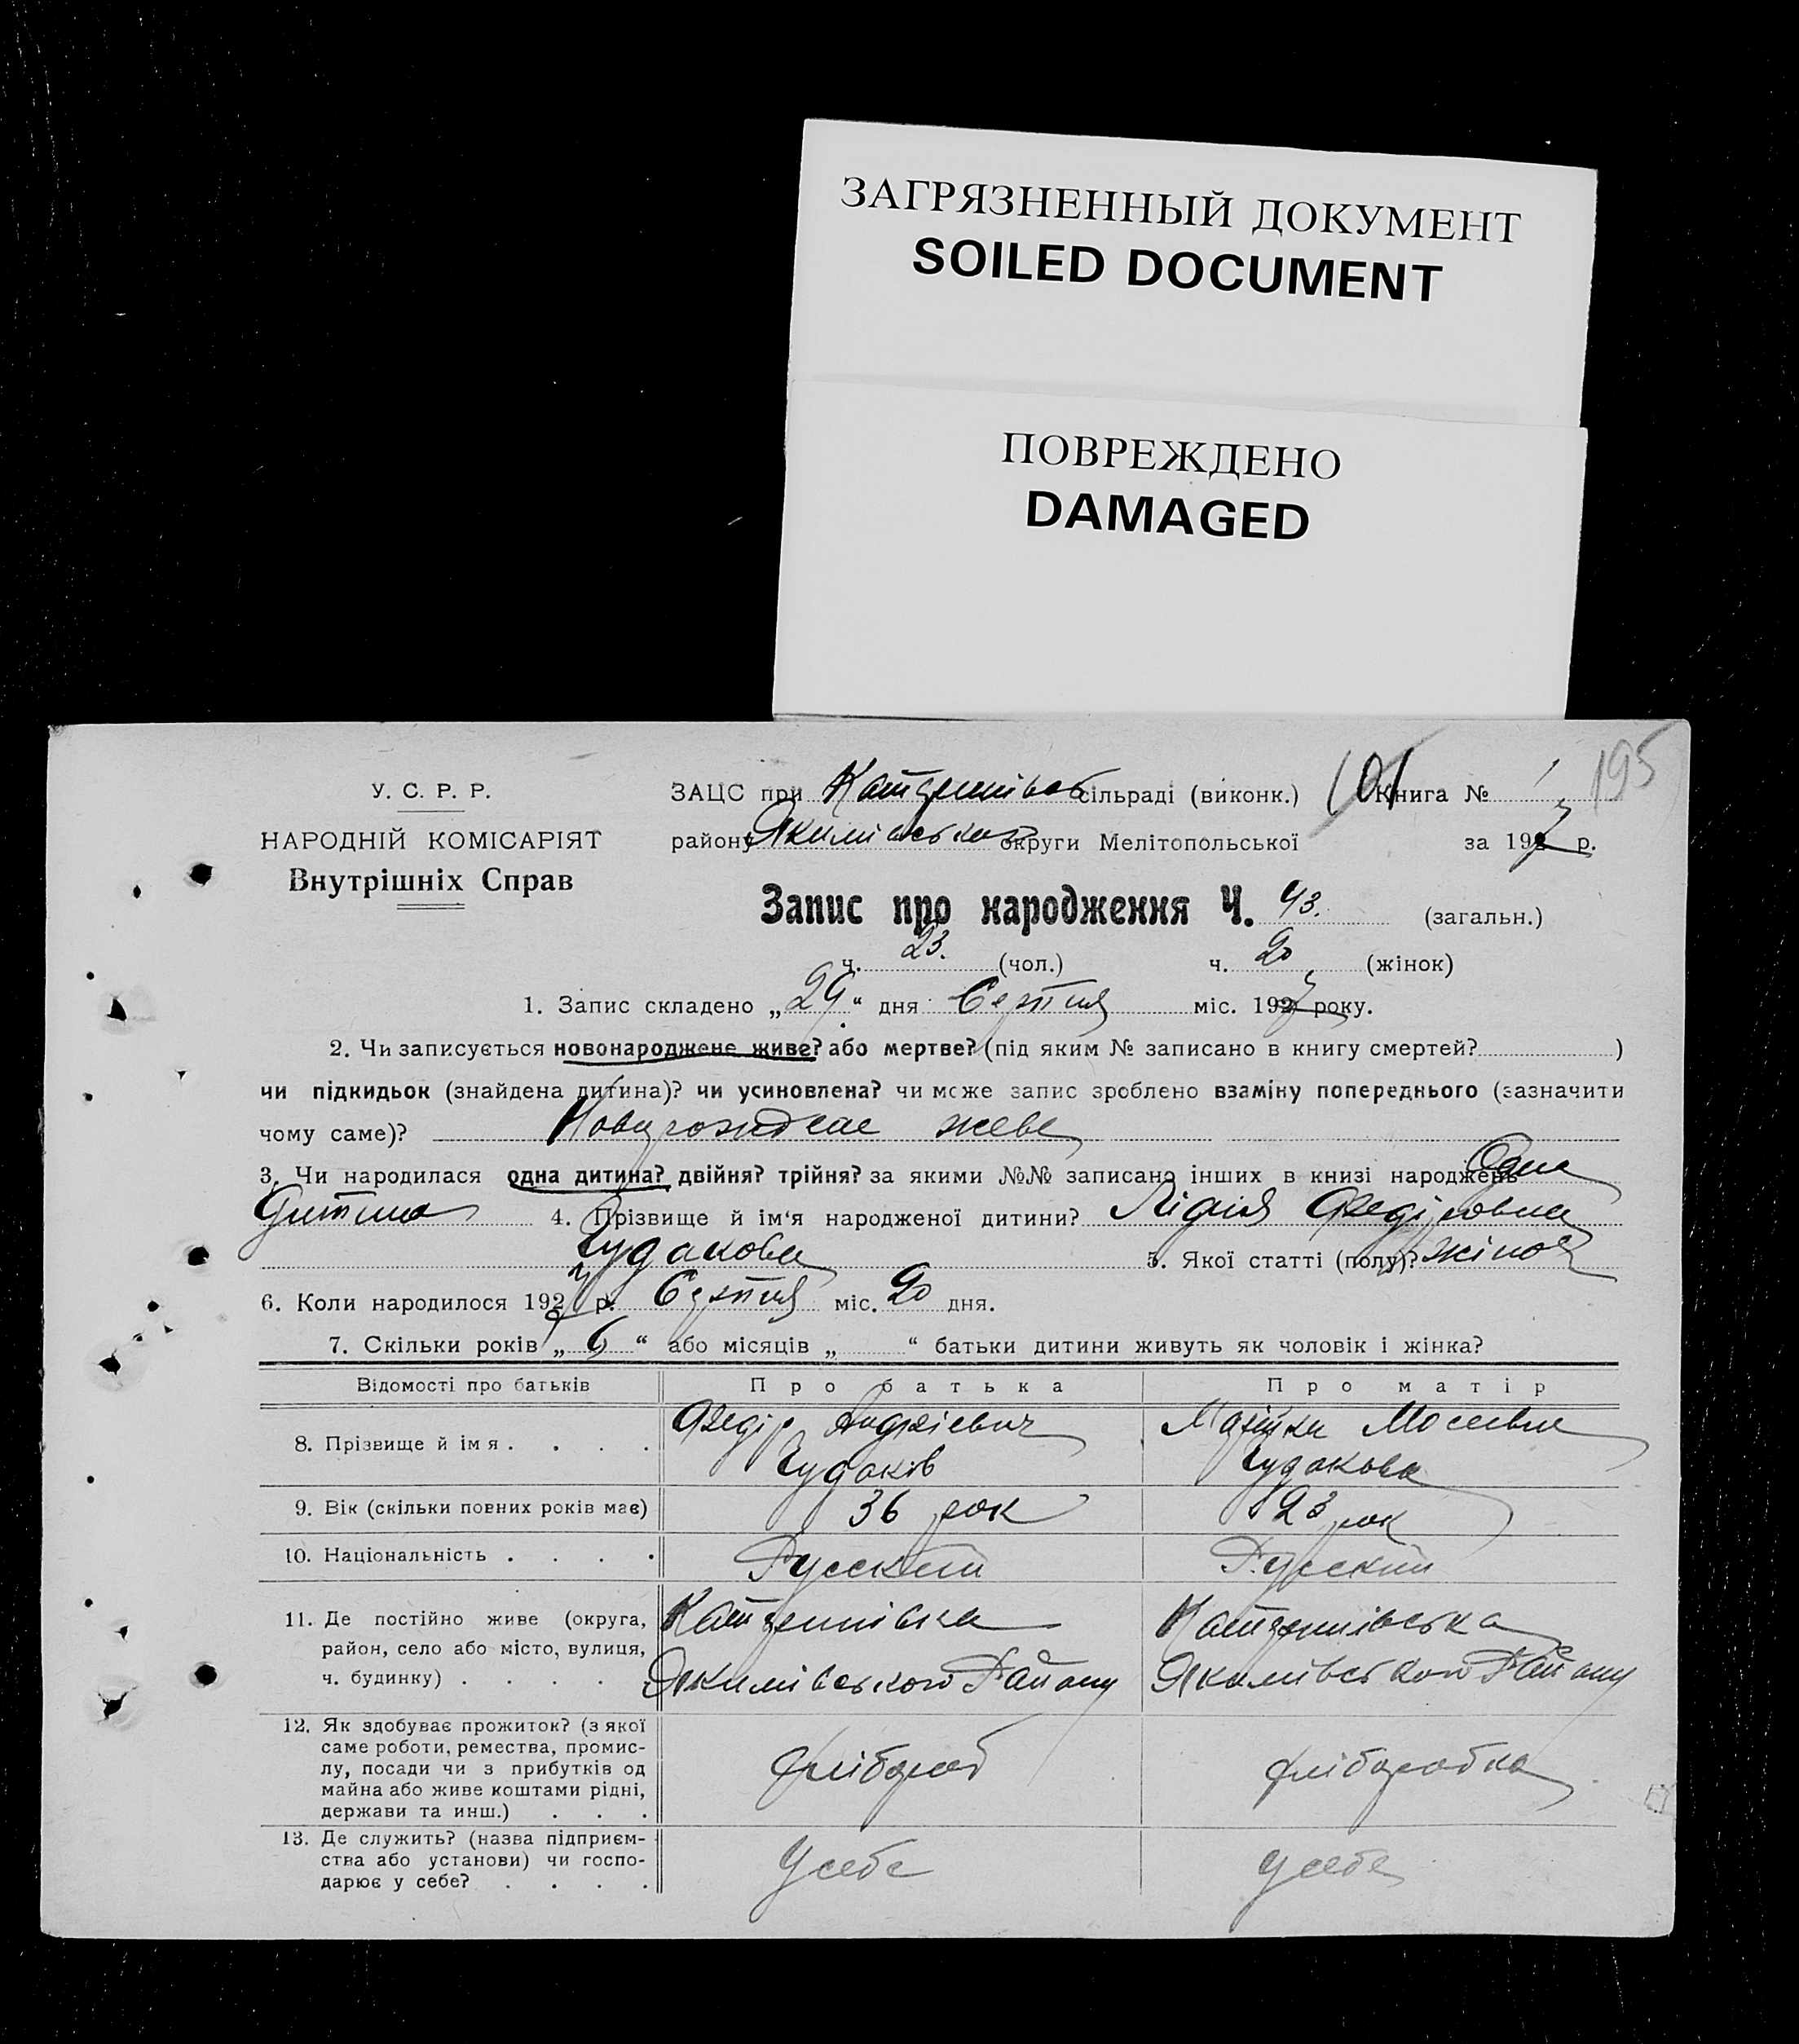 ЗАГРЯЗНЕННЫЙ ДОКУМЕНТ
SOILED DOCUMENT
ПОВРЕЖДЕНО
DAMAGED
195
У. С. Р. Р.
НАРОДНІЙ КОМІСАРІЯТ
Внутрішніх Справ
ЗАЦС при сільраді (виконк.) 101 Книга № 1
району Якимівського округи Мелітопольської за 1927 р.
Запис про народження Ч. 43. (загальн.)
ч. 23. (чол.) ч. 20 (жінок)
1. Запис складено „29.“ дня Серпня міс. 1927 року.
2. Чи записується новонароджене живе? або мертве? (під яким № записано в книгу смертей? )
чи підкидьок (знайдена дитина)? чи усиновлена? чи може запис зроблено взаміну попереднього (зазначити
чому саме)? живе
3. Чи народилася одна дитина? двійня? трійня? за якими №№ записано інших в книзі народжень Одна
дитина 4. Прізвище й ім‘я народженої дитини? Лідія Федіровна
Чудакова 5. Якої статті (полу)? жіноч
6. Коли народилося 1927 р. Серпня міс. 20 дня.
7. Скільки років „ 6 “ або місяців „ “ батьки дитини живуть як чоловік і жінка?
Відомості про батьків Про батька Про матір
8. Прізвище й ім я . . . . Федір Андрієвич Мосеевна
Чудаків Чудакова
9. Вік (скільки повних років має) 36 рок 23 рок
10. Національність . . . . Русский Русский
11. Де постійно живе (округа,
район, село або місто, вулиця, Якимівського Району Якимівського Району
ч. будинку) . . . .
12. Як здобуває прожиток? (з якої
саме роботи, ремества, промис-
лу, посади чи з прибутків од хлібороб хліборобка
майна або живе коштами рідні,
держави та инш.) . . .
13. Де служить? (назва підприєм-
ства або установи) чи госпо- У себе у себе
дарює у себе? . . . .